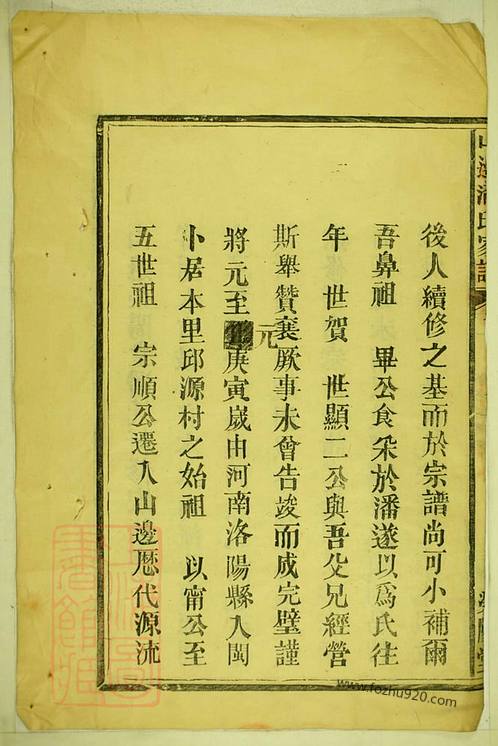 山邊潘氏家譜
後人續修之基而於宗譜尚可小補爾
吾鼻祖　畢公食采於潘遂以爲氏往
年　世賀　世顯二公與吾父兄經營
斯舉贊襄厥事未曾告竣而成完璧謹
將元至元庚寅嵗由河南洛陽縣入閩
卜居本里邱源村之始祖　以甯公至
五世祖　宗順公遷入山邊歷代源流
www.fozhu920.com